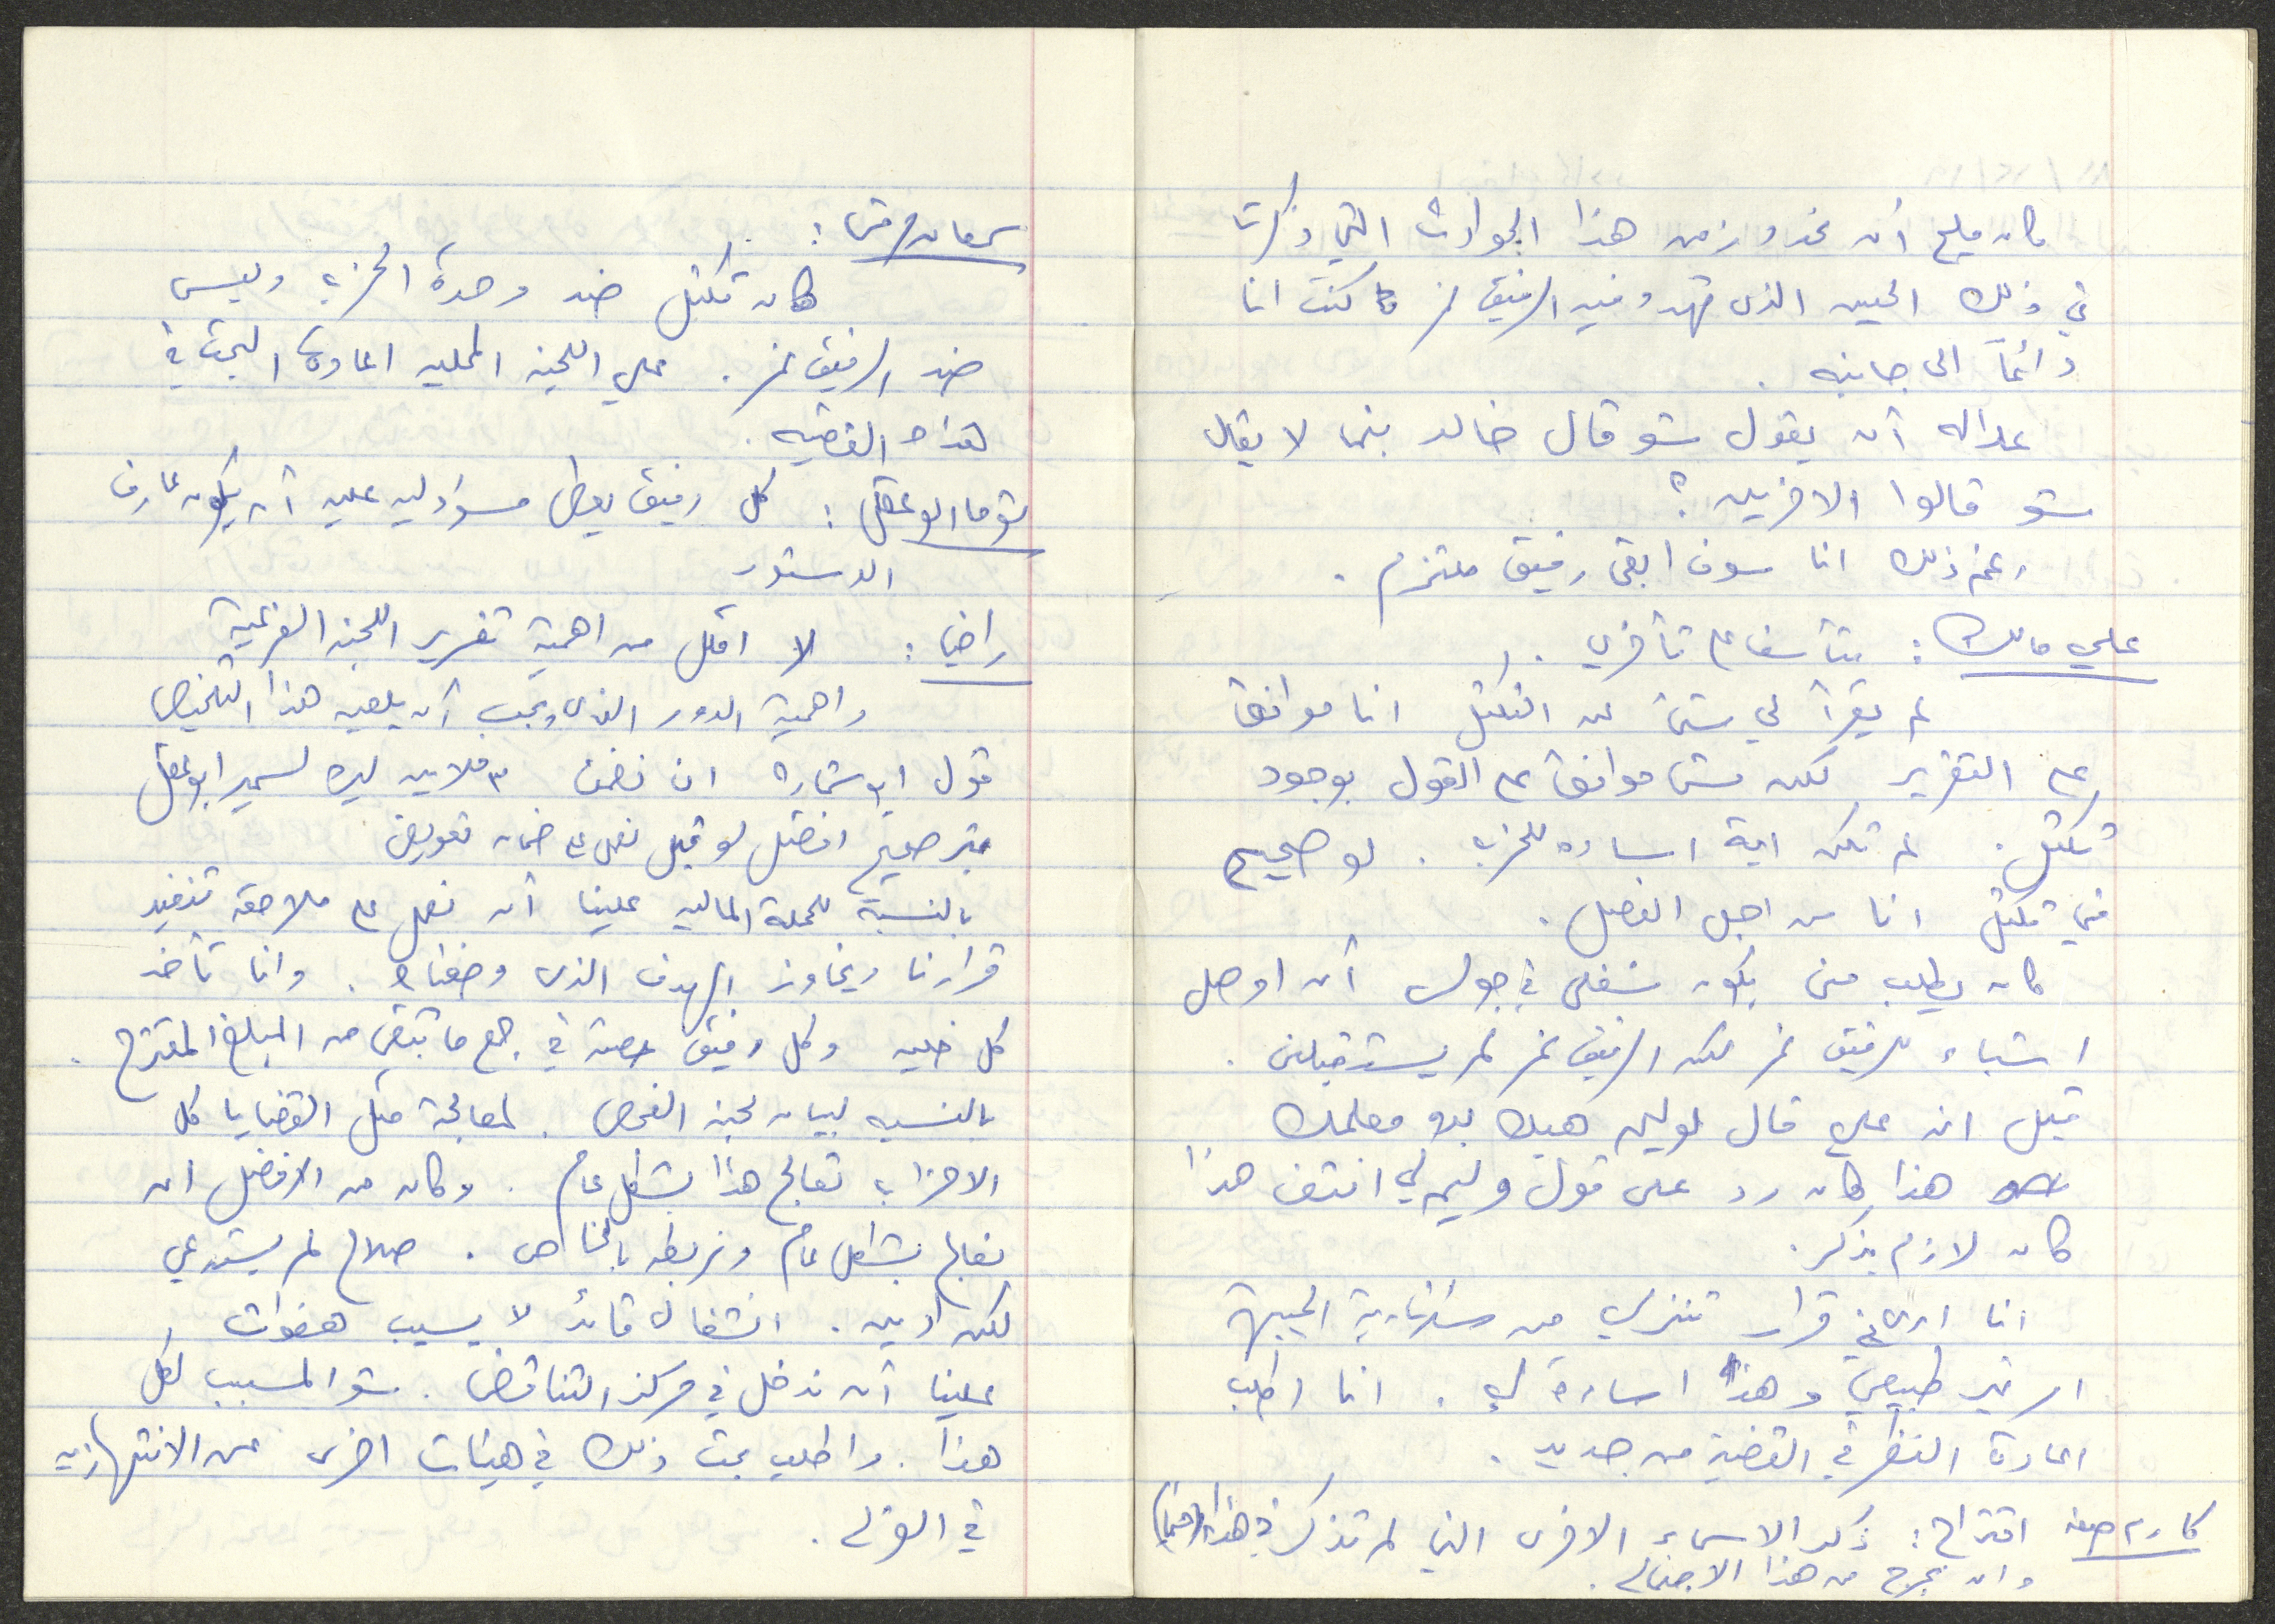 كان مليح أن نحدد زمن هذا الحوادث التي ذكرت
في ذلك الحين الذي تهدد فيه الرفيق نمر كنت انا
دائماً الى جانبه .
عدالة أن يقول شو قال خالد بينما لا يقال
شو قالوا الاخرين ؟
رغم ذلك انا سوف ابقى رفيق ملتزم .
علي مالك : متأسف على تأخري .
لم يقرأ لي شيئ عن التكتل انا موافق
على التقرير لكن مش موافق على القول بوجود
تكتل . لم تكن اية اساءه للحزب . لو صحيح
في تكتل انا من اجل الفصل .
كان يطلب مني يكون شغلي في جولس أن اوصل
اشياء للرفيق نمر لكن الرفيق نمر لم يستقبلني .
قيل ان علي قال لوليم هيك بدو معلمك
هذا كان رد على قول وليم لي انتف هذا
كان لازم يذكر .
انا ارى في قرار تنزيلي من سكرتارية الجبهة
امر غير طبيعي وهذا اساءة لي . انا اطلب
اعادة النظر في القضية من جديد .
اقتراح : ذكر الاسماء الاخرى التي لم تذكر في هذا
وان نخرج من هذا الاجتماع .
سمعان :
كان تكتل ضد وحدة الحزب وليس
ضد الرفيق نمر . على اللجنة المحلية اعادة البحث في
هذه القضية .
توما ابو عقل : كل رفيق يعطى مسؤولية عليه أن يكون عارف
الدستور
راضي : لا اقلل من اهمية تقرير اللجنة الفرعية
واهمية الدور الذي يجب أن يلعبه هذا التلخيص
قول ان نضمن ٣ ملايين ليره لسمير ابو عقل
غير صحيح افضل لو قيل نعمل على ضمان تعويض
بالنسبة للحملة المالية علينا أن نعمل على ملاحقة تنفيذ
قرارنا وتجاوز الهدف الذي وضعناه . وانا تأخذ
كل خلية وكل رفيق حصته في جمع ما تبقى من المبلغ المقترح .
بالنسبه لبيان لجنة الفحص . لمعالجة مثل القضايا كل
الاحزاب تعالج هذا بشكل عام . وكان من الافضل ان
نعالج بشكل عام ونربطه بالخاص . صلاح لم يستدعي
لكن ادين . انشغال قائد لا يسبب هفوات
علينا أن ندخل في مركز التناقض . شو المسبب لكل
هذا . واطلب بحث ذلك في هيئات اخرى عن الانتهازيه
في